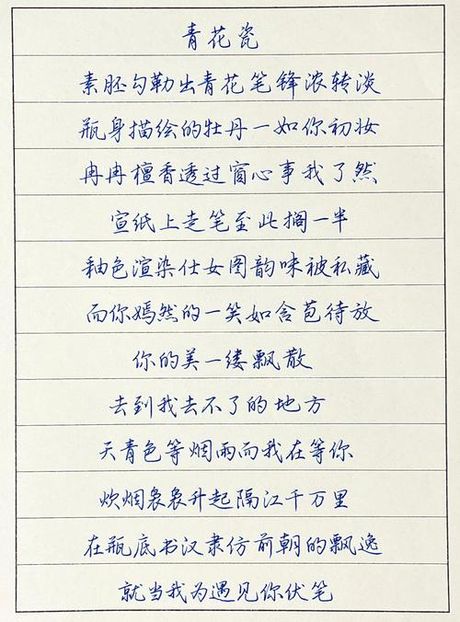 青花瓷
素胚勾勒出青花笔锋浓转淡
瓶身描绘的牡丹一如你初妆
冉冉檀香透过窗心事我了然
宣纸上走笔至此搁一半
釉色渲染仕女图韵味被私藏
而你嫣然的一笑如含苞待放
你的美一缕飘散
去到我去不了的地方
天青色等烟雨而我在等你
炊烟袅袅升起隔江千万里
在瓶底书汉隶仿前朝的飘逸
就当我为遇见你伏笔